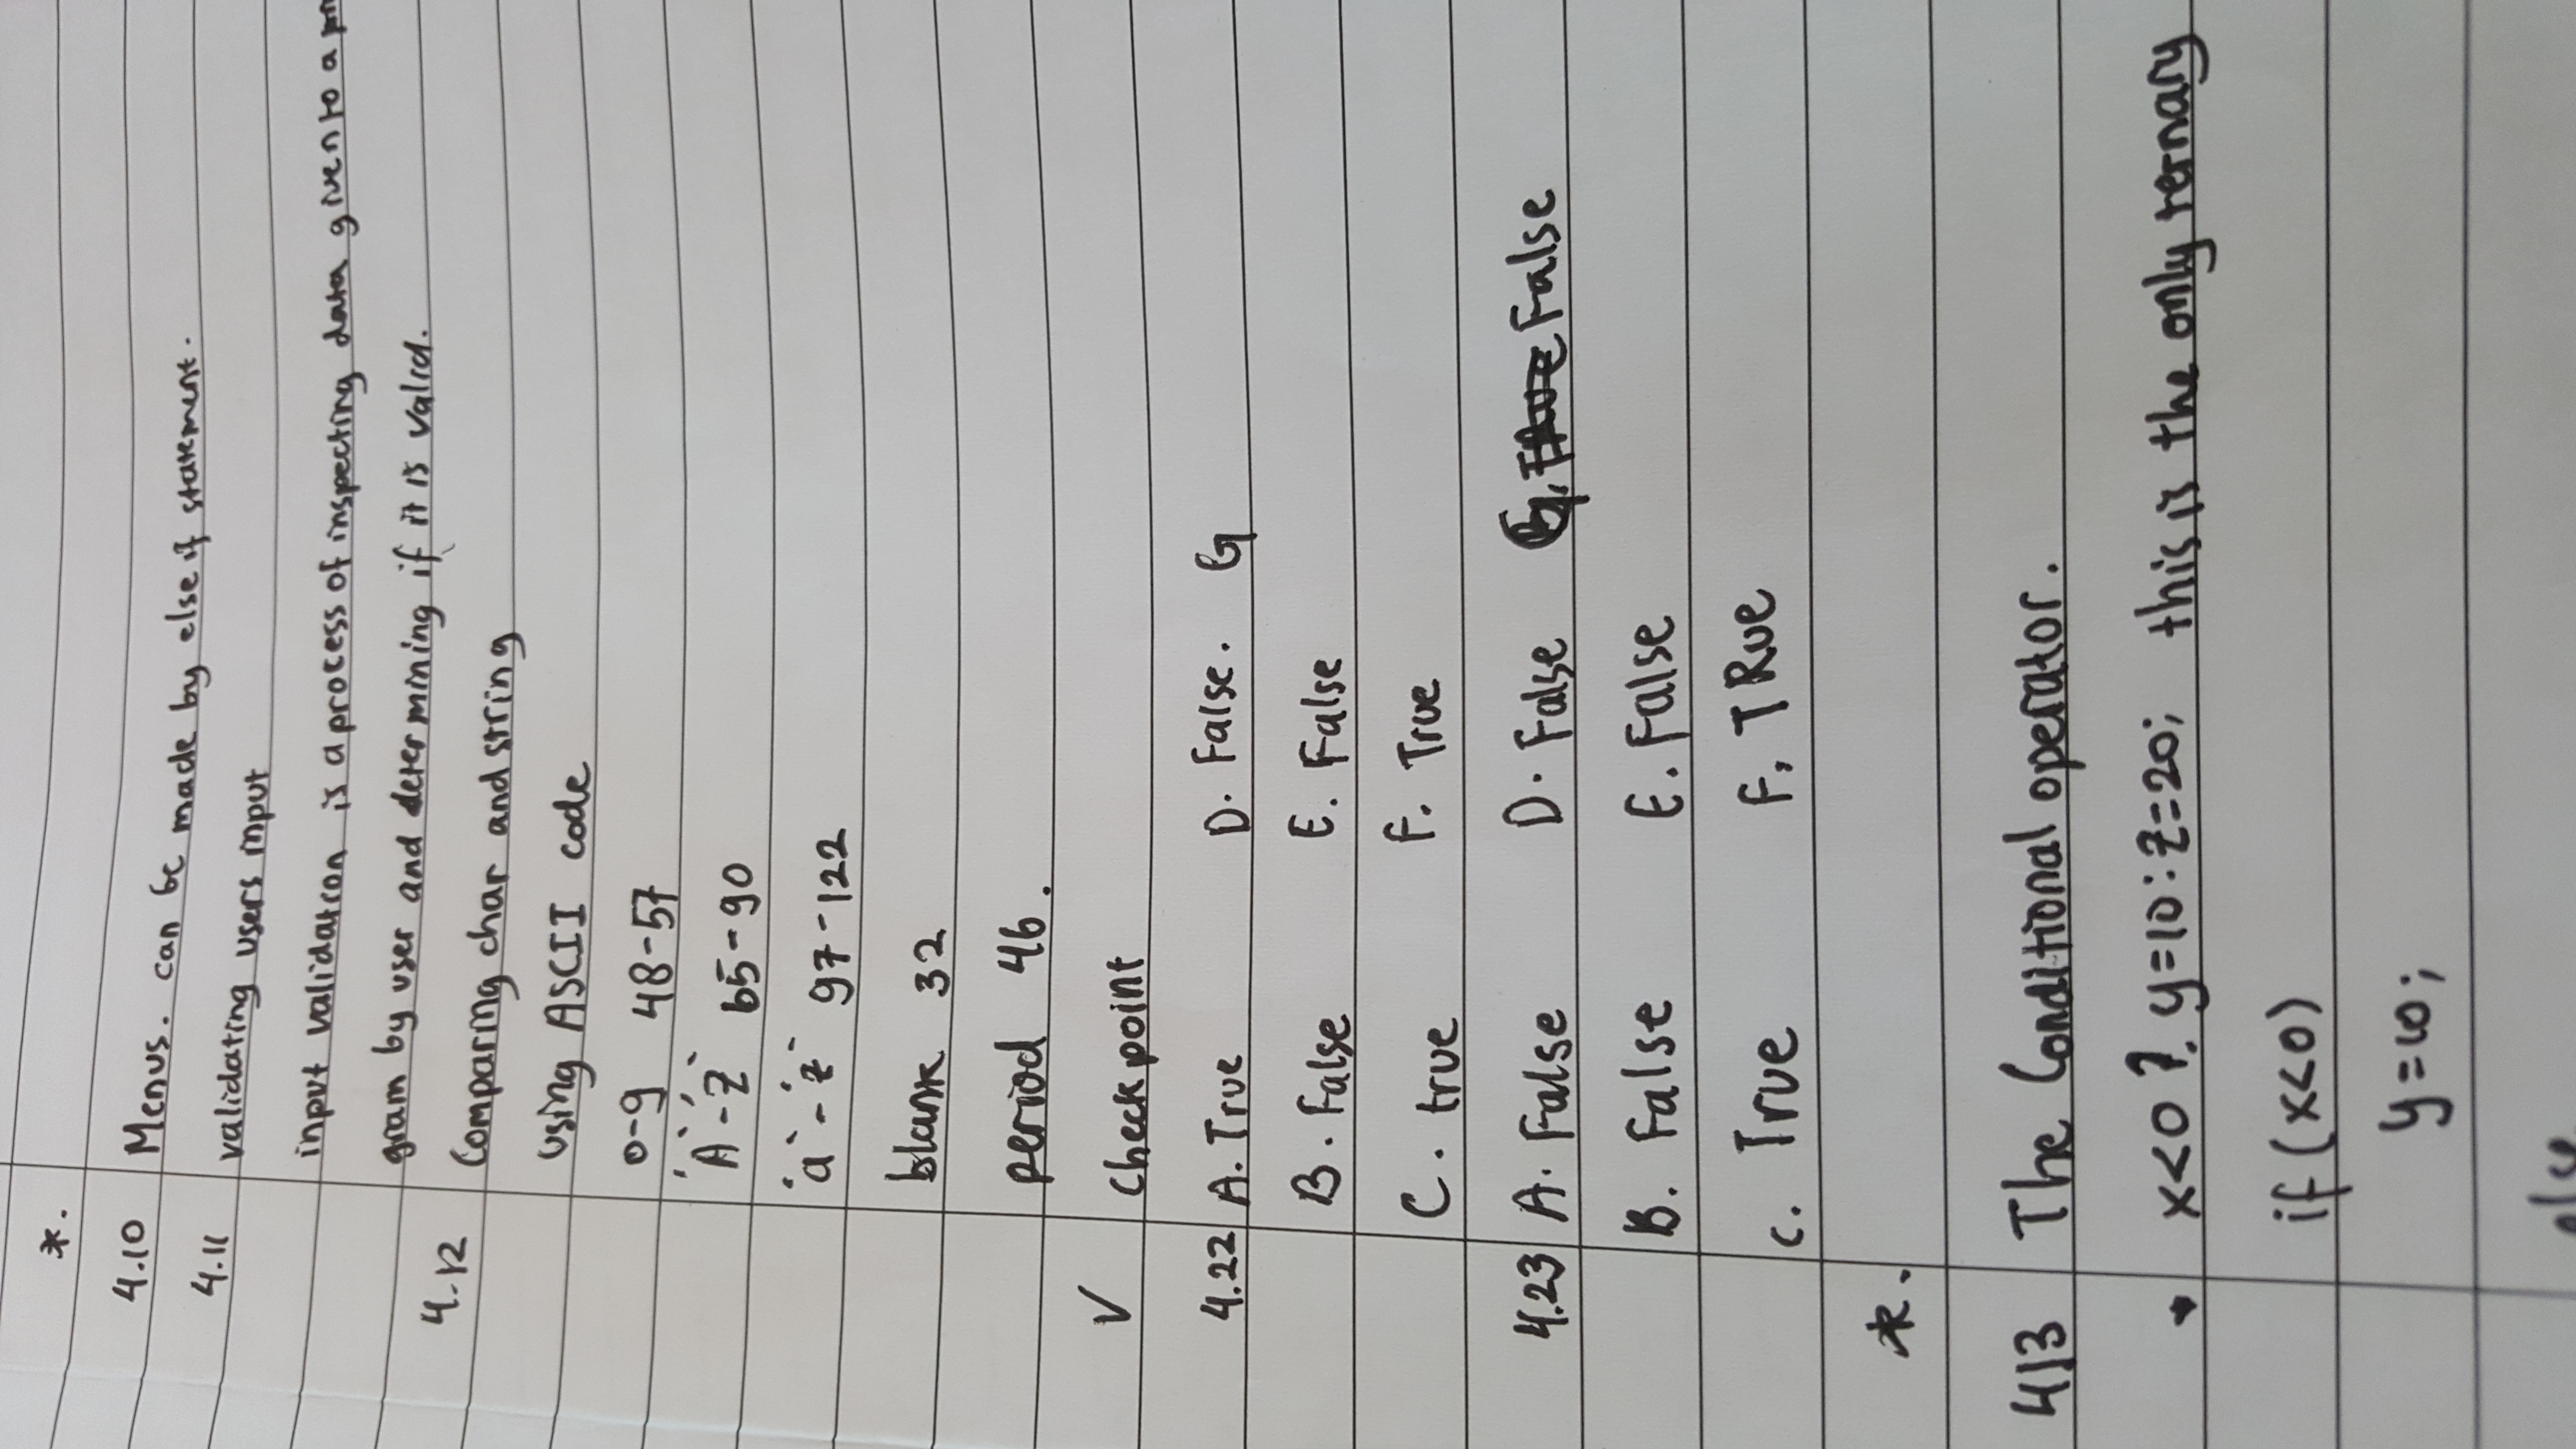 *.
4.10 Menus. can be made by else if statement.
4.11 validating users input
input validation is a process of inspecting data given to a pro
gram by user and determining if it is valid.
4.12 Comparing char and string
using ASCII code
0-9 48-57
'A'-'Z' 65-90
'a'-'z' 97-122
blank 32
period 46.
✓ Checkpoint
4.22 A. True D. False. G
B. False E. False
C. true F. True
4.23 A. False D. False G. False
B. False E. False
C. True F. TRue
*.
4.13 The Conditional operator.
x<0 ? y=10 : z=20; this is the only ternary
if (x<0)
y=10;
else